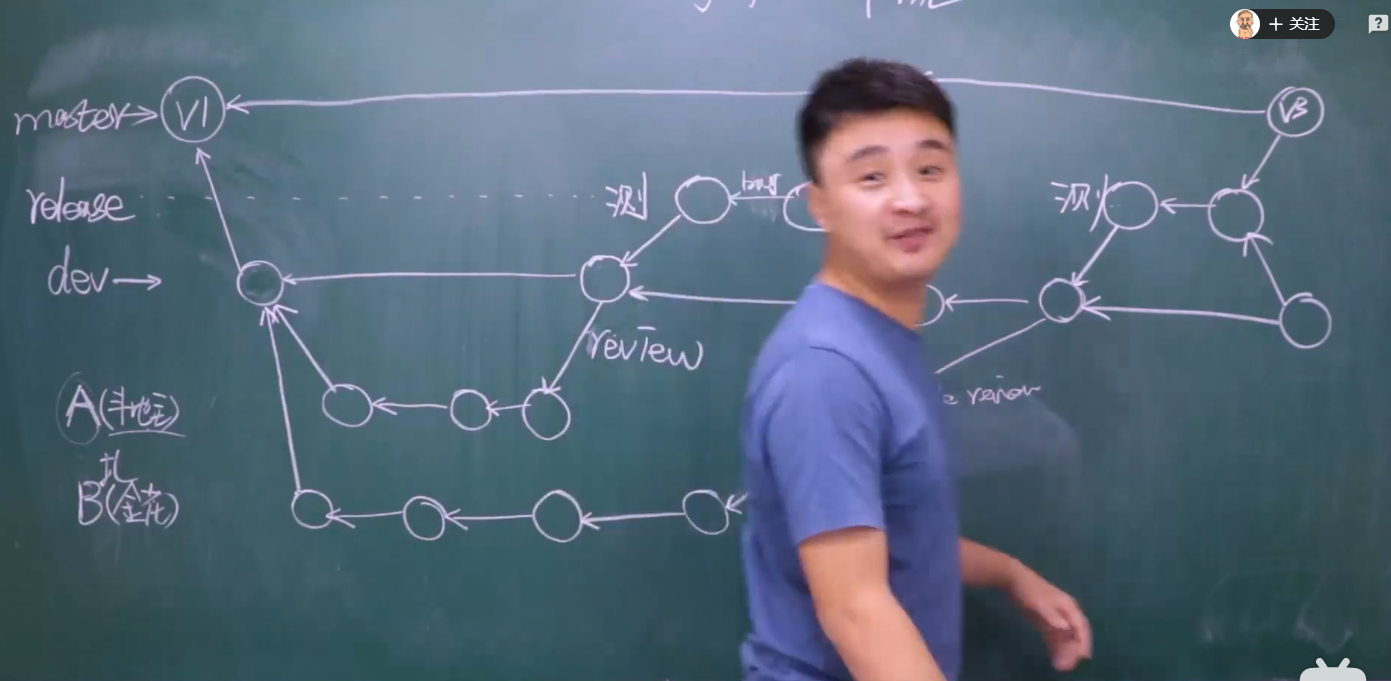 关注
?
master
V1
V3
release
测
bug
测
dev
review
A(斗地主)
B(金花)